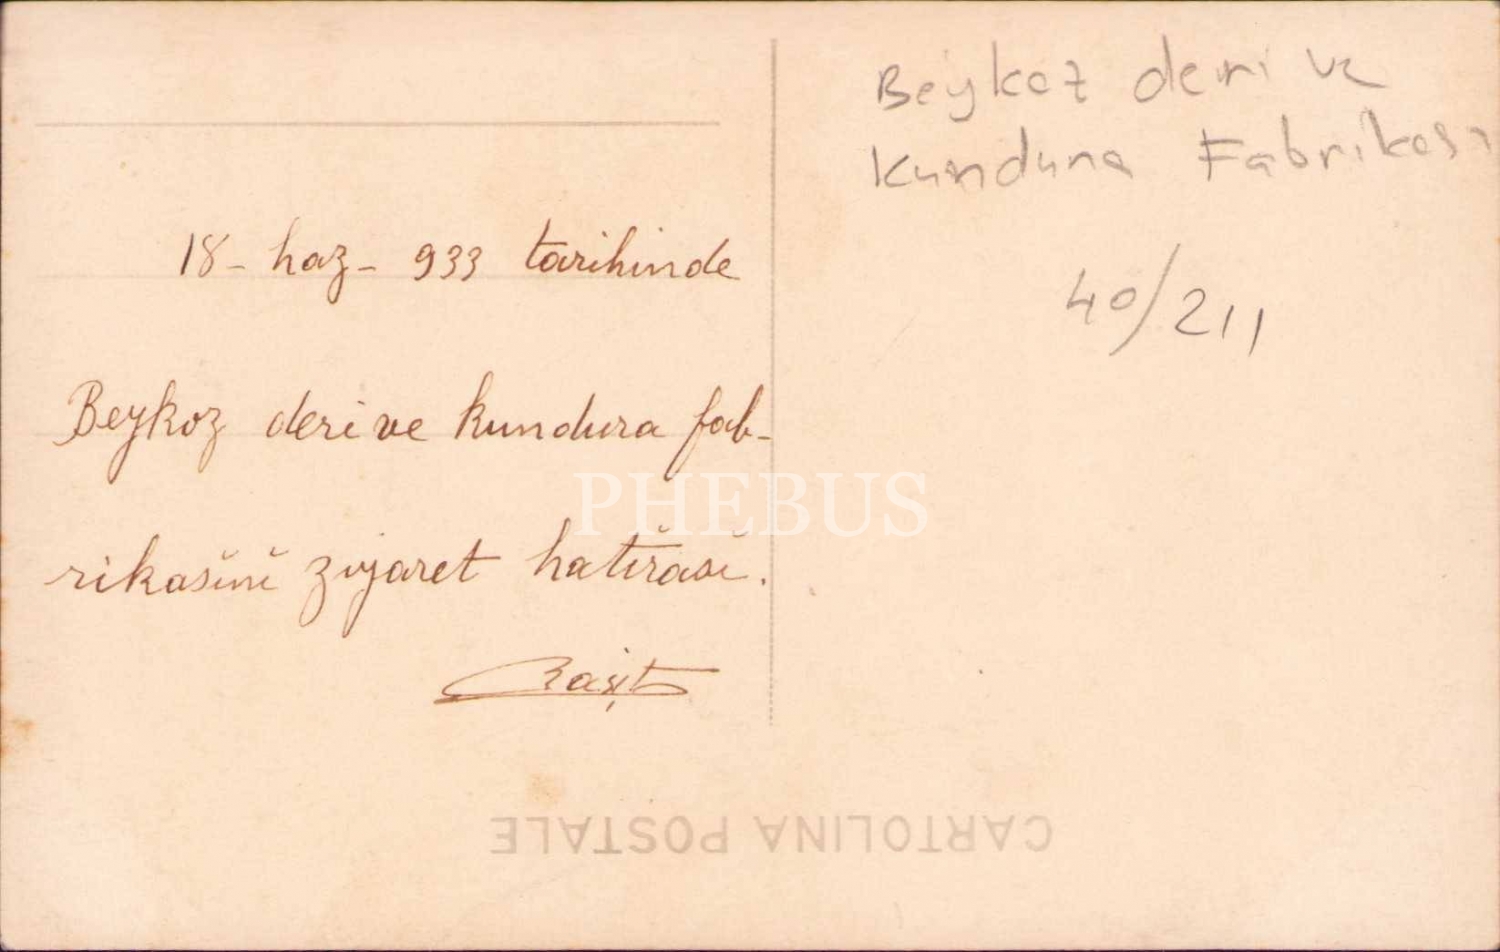 18- haz- 933 tarihinde
Beykoz deri ve kundura fab-
rikasĭnĭ ziyaret hatĭrasĭ.
Raşit
Beykoz deri ve
Kundura Fabrikası
40/211
PHEBUS
CARTOLINA POSTALE